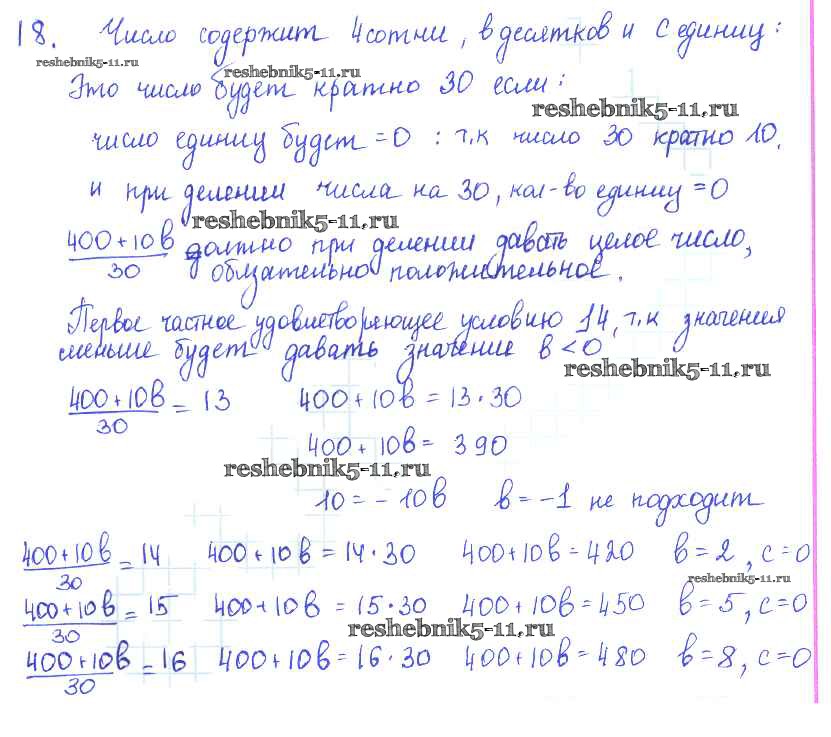 18. Число содержит 4 сотни, в десятков и с единиц:
reshebnik5-11.ru
reshebnik5-11.ru
Это число будет кратно 30 если:
reshebnik5-11.ru
число единиц будет =0 : т.к число 30 кратно 10.
и при делении числа на 30, кол-во единиц =0
reshebnik5-11.ru
400+10в/30 должно при делении давать целое число,
обязательно положительное.
Первое частное удовлетворяющее условию 14, т.к значения
меньше будет давать значение в <0
reshebnik5-11.ru
400+10в/30 = 13 400+10в = 13·30
400+10в = 390
reshebnik5-11.ru
10 = -10в в = -1 не подходит
400+10в/30 = 14 400+10в = 14·30 400+10в = 420 в = 2, с=0
reshebnik5-11.ru
400+10в/30 = 15 400+10в = 15·30 400+10в = 450 в = 5, с=0
reshebnik5-11.ru
400+10в/30 = 16 400+10в = 16·30 400+10в = 480 в = 8, с=0